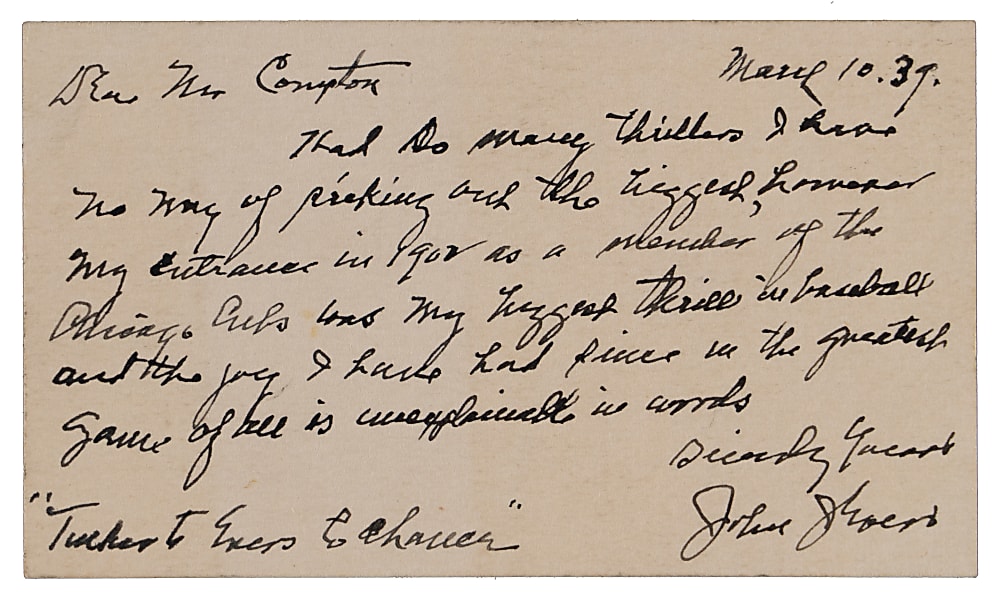 Dear Mr Compton March 10. 39.
Had so many thrillers I have
no way of picking out the biggest, however
my entrance in 1902 as a member of the
Chicago Cubs was my biggest thrill in baseball
and the joy I have had since in the greatest
game of all is unexplainable in words
Sincerely Yours
"Tinker to Evers to Chance" John J Evers